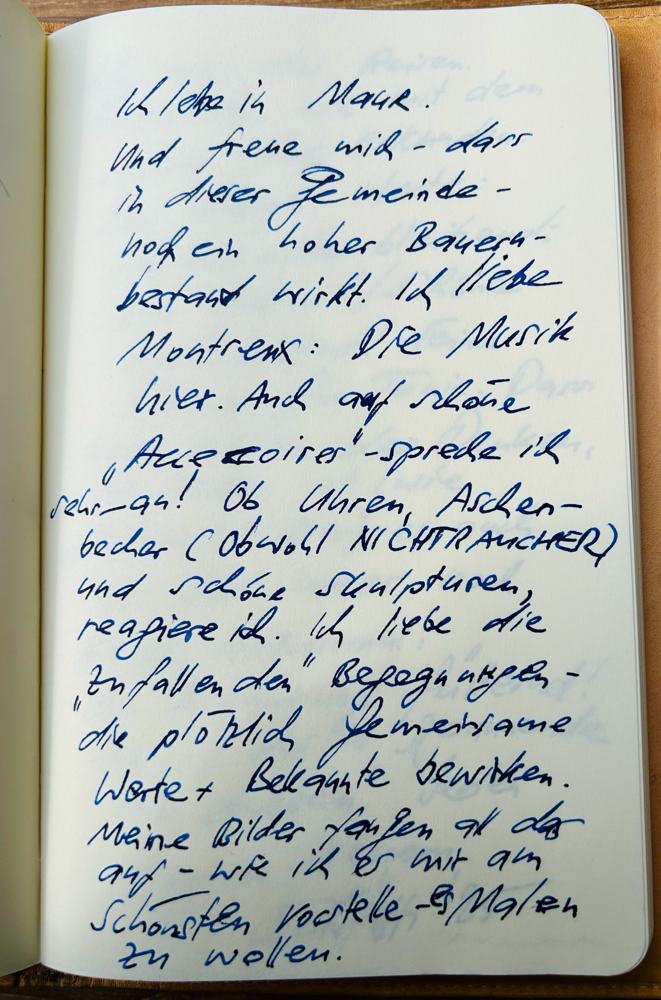 Ich lebe in Maur.
Und freue mich - dass
in dieser Gemeinde -
noch ein hoher Bauern-
bestand wirkt. Ich liebe
Montreux: Die Musik
hier. Auch auf schöne
„Accecoires" - spreche ich
sehr - an! Ob Uhren, Aschen-
becher (Obwohl NICHTRAUCHER)
und schöne Skulpturen,
reagiere ich. Ich liebe die
„Zufallenden" Begegnungen -
die plötzlich gemeinsame
Werte + Bekannte bewirken.
Meine Bilder fangen all das
auf - wie ich es mir am
schönsten vorstelle - es Malen
zu wollen.